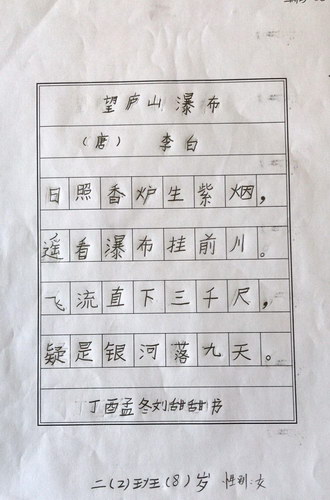 望庐山瀑布
（唐） 李白
日照香炉生紫烟，
遥看瀑布挂前川。
飞流直下三千尺，
疑是银河落九天。
丁酉孟冬刘甜甜书
二（2）班（8）岁 性别：女